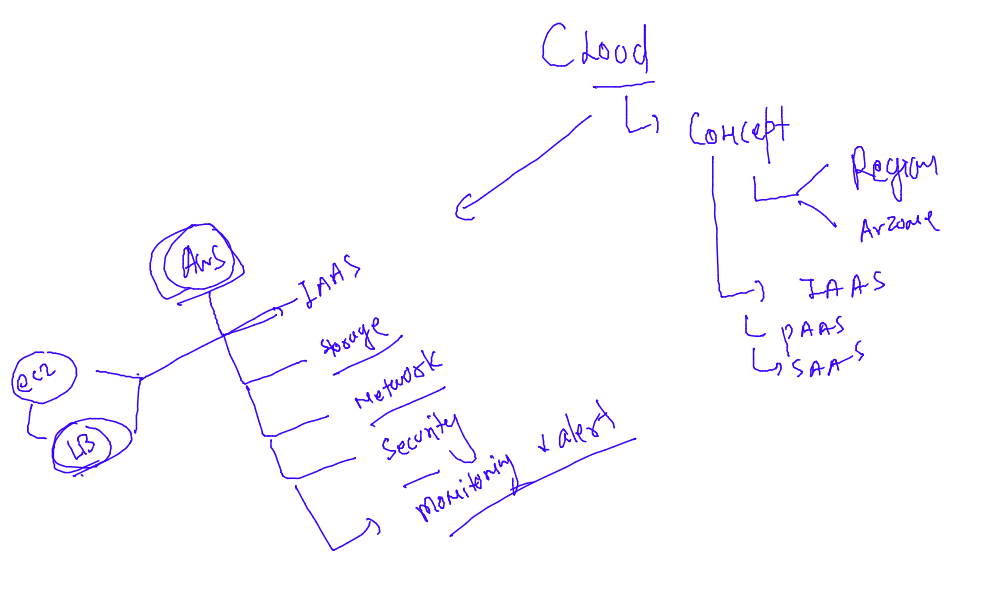 Cloud
Concept
Region
AvZone
IAAS
PAAS
SAAS
AWS
IAAS
Storage
Network
Security
Monitoring & alert
EC2
LB